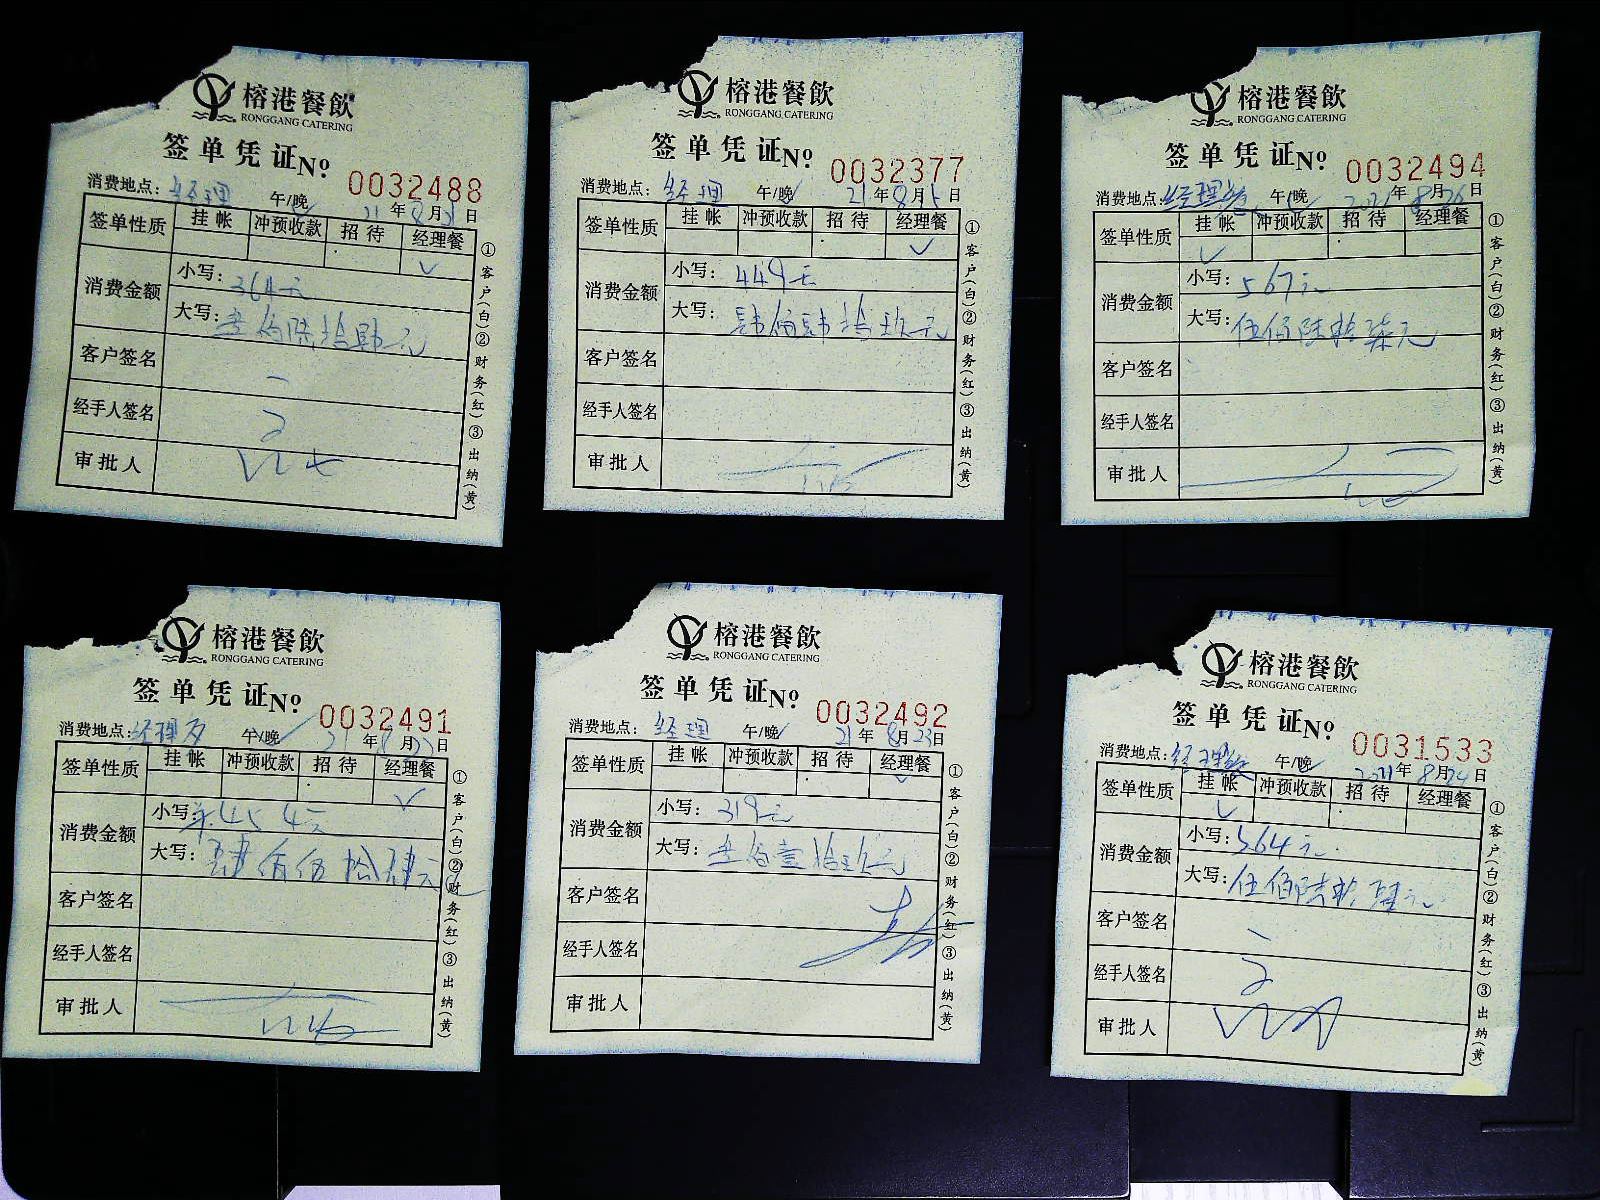 榕港餐飲
RONGGANG CATERING
签单凭证 No 0032488
消费地点：经理 午/晚 21年8月21日
签单性质 挂帐 冲预收款 招待 经理餐
消费金额 小写：364元
大写：叁佰陆拾肆元
客户签名
经手人签名
审批人
①客户(白)②财务(红)③出纳(黄)
榕港餐飲
RONGGANG CATERING
签单凭证 No 0032377
消费地点：经理 午/晚 21年8月 日
签单性质 挂帐 冲预收款 招待 经理餐
消费金额 小写：449元
大写：肆佰肆拾玖元
客户签名
经手人签名
审批人
①客户(白)②财务(红)③出纳(黄)
榕港餐飲
RONGGANG CATERING
签单凭证 No 0032494
消费地点：经理餐 午/晚 2021年8月26日
签单性质 挂帐 冲预收款 招待 经理餐
消费金额 小写：567元
大写：伍佰陆拾柒元
客户签名
经手人签名
审批人
①客户(白)②财务(红)③出纳(黄)
榕港餐飲
RONGGANG CATERING
签单凭证 No 0032491
消费地点：经理 午/晚 21年8月 日
签单性质 挂帐 冲预收款 招待 经理餐
消费金额 小写：454元
大写：肆佰伍拾肆元
客户签名
经手人签名
审批人
①客户(白)②财务(红)③出纳(黄)
榕港餐飲
RONGGANG CATERING
签单凭证 No 0032492
消费地点：经理 午/晚 21年8月23日
签单性质 挂帐 冲预收款 招待 经理餐
消费金额 小写：319元
大写：叁佰壹拾玖元
客户签名
经手人签名
审批人
①客户(白)②财务(红)③出纳(黄)
榕港餐飲
RONGGANG CATERING
签单凭证 No 0031533
消费地点：经理餐 午/晚 2021年8月24日
签单性质 挂帐 冲预收款 招待 经理餐
消费金额 小写：564元
大写：伍佰陆拾肆元
客户签名
经手人签名
审批人
①客户(白)②财务(红)③出纳(黄)